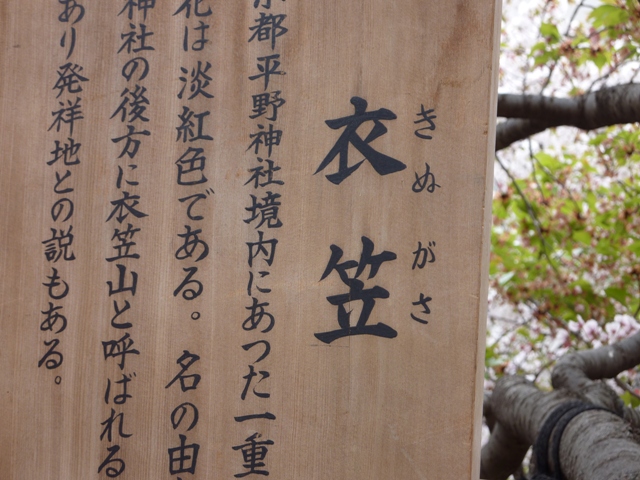 衣笠
きぬがさ
都平野神社境内にあつた一重
花は淡紅色である。名の由
神社の後方に衣笠山と呼ばれる
あり発祥地との説もある。